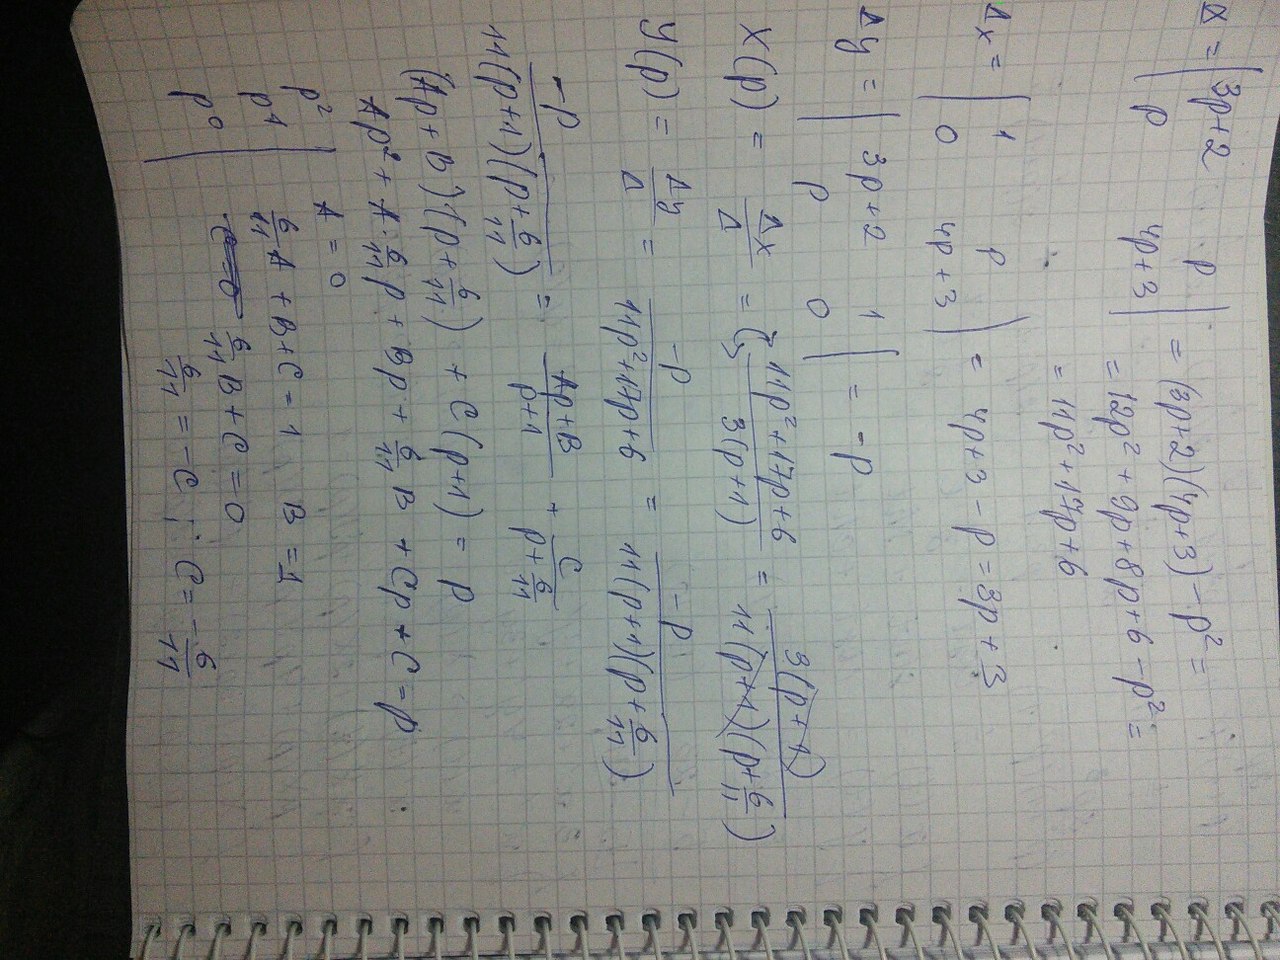 Δ = | 3p+2 p | = (3p+2)(4p+3) - p² =
| p 4p+3 | = 12p² + 9p + 8p + 6 - p² =
= 11p² + 17p + 6
Δx = | 1 p | = 4p+3 - p = 3p + 3
| 0 4p+3 |
Δy = | 3p+2 1 | = -p
| p 0 |
X(p) = Δx/Δ = 11p² + 17p + 6 / 3(p+1) = 3(p+1) / 11(p+1)(p+6/11)
Y(p) = Δy/Δ = -p / 11p²+17p+6 = -p / 11(p+1)(p+6/11)
-p / 11(p+1)(p+6/11) = Ap+B / p+1 + C / p+6/11
(Ap+B)(p+6/11) + C(p+1) = p
Ap² + A·6/11 p + Bp + 6/11 B + Cp + C = p
p² | A = 0
p¹ | 6/11 A + B + C = 1 B = 1
p⁰ | 6/11 B + C = 0
6/11 = -C ; C = -6/11